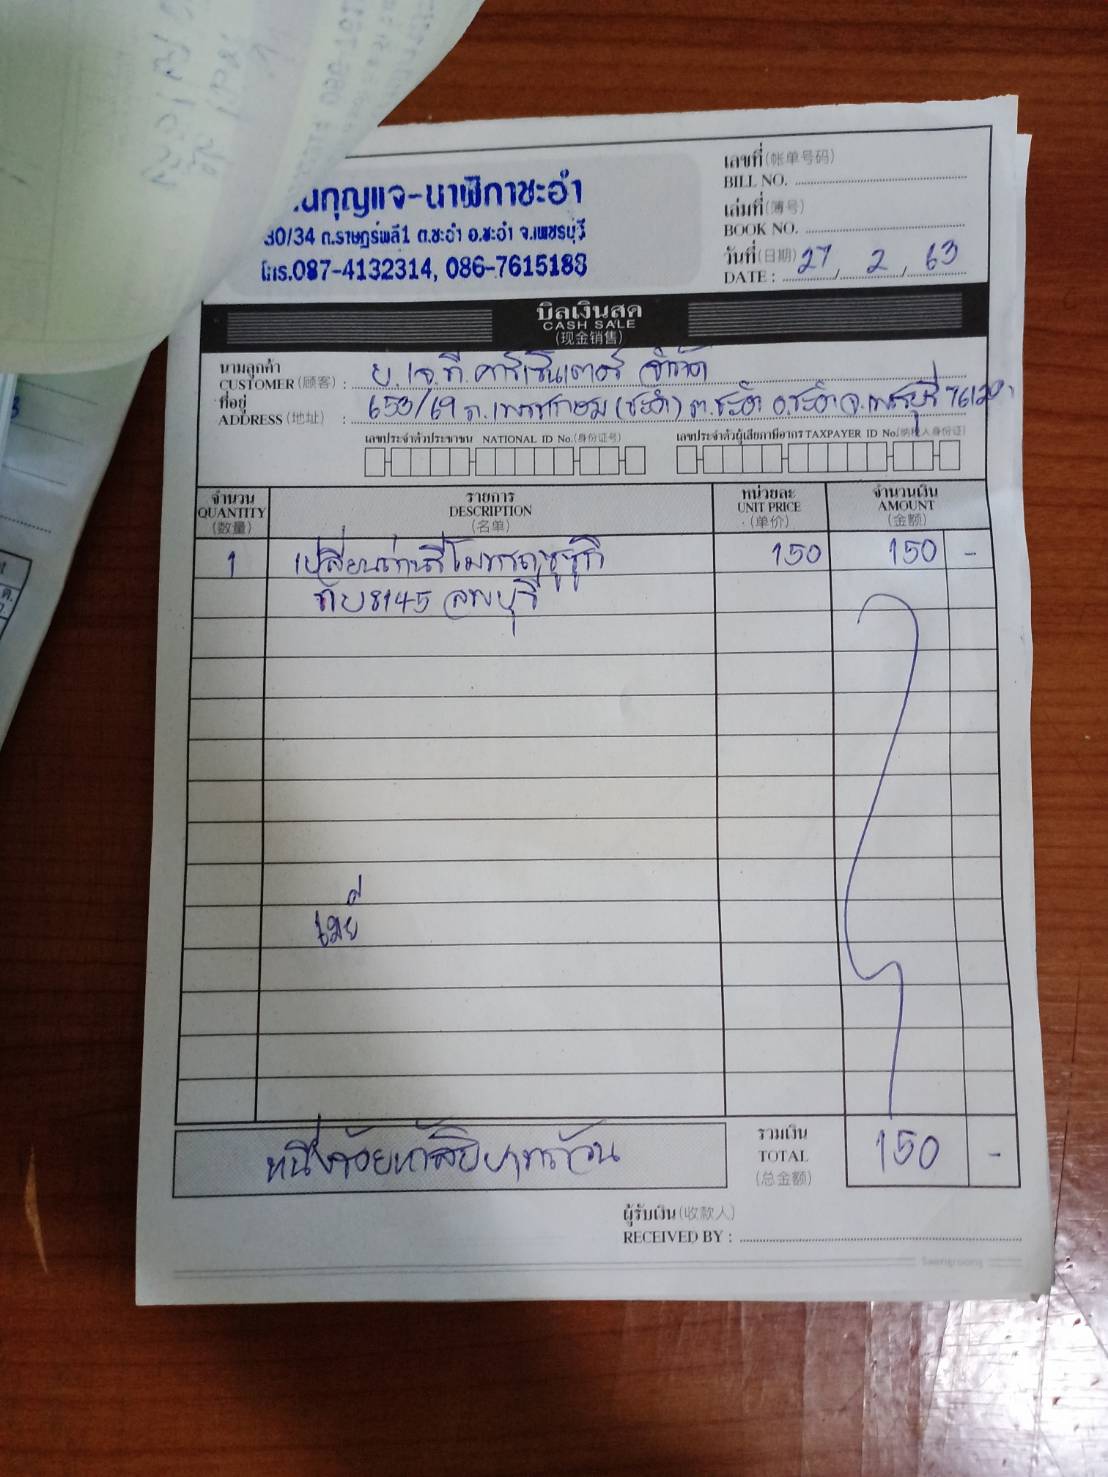 นกุญแจ-นาฬิกาชะอำ
30/34 ถ.ราษฎร์พลี1 ต.ชะอำ อ.ชะอำ จ.เพชรบุรี
โทร.087-4132314, 086-7615188
เลขที่(帐单号码)
BILL NO.
เล่มที่(簿号)
BOOK NO.
วันที่(日期) 27 2 63
DATE :
บิลเงินสด
CASH SALE
(现金销售)
นามลูกค้า
CUSTOMER (顾客) : บ.เจ.ที.คาร์เซ็นเตอร์ จำกัด
ที่อยู่
ADDRESS (地址) : 650/69 ถ.เพชรเกษม (ชะอำ) ต.ชะอำ อ.ชะอำ จ.เพชรบุรี 76120
เลขประจำตัวประชาชน NATIONAL ID No.(身份证号) เลขประจำตัวผู้เสียภาษีอากร TAXPAYER ID No.(纳税人身份证)
จำนวน รายการ หน่วยละ จำนวนเงิน
QUANTITY DESCRIPTION UNIT PRICE AMOUNT
(数量) (名单) (单价) (金额)
1 เปลี่ยนถ่านรีโมทรถซูซูกิ 150 150 -
8145 ลพบุรี
หนึ่งร้อยห้าสิบบาทถ้วน
รวมเงิน
TOTAL 150 -
(总金额)
ผู้รับเงิน(收款人)
RECEIVED BY :